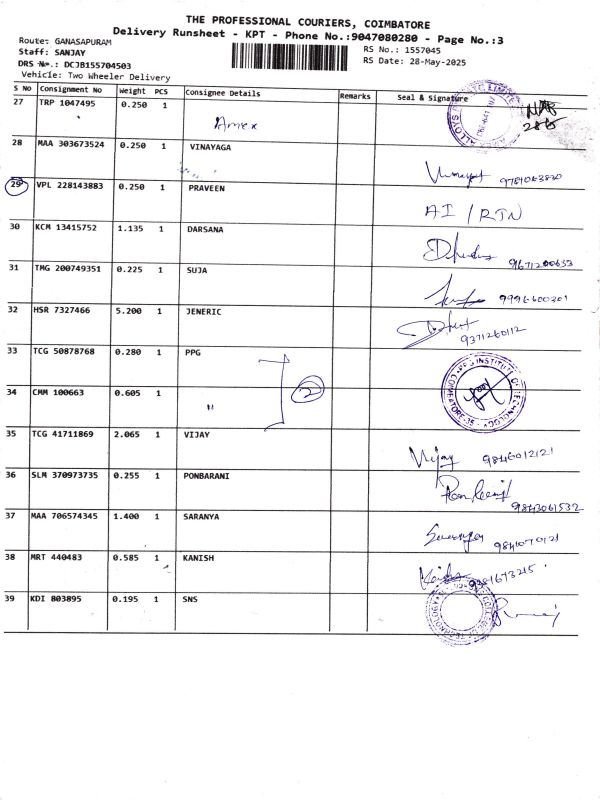 THE PROFESSIONAL COURIERS, COIMBATORE
Delivery Runsheet - KPT - Phone No.:9047080280 - Page No.:3
Route: GANASAPURAM
Staff: SANJAY
DRS No.: DCJB155704503
Vehicle: Two Wheeler Delivery
RS No.: 1557045
RS Date: 28-May-2025
S No Consignment No Weight PCS Consignee Details Remarks Seal & Signature
27 TRP 1047495 0.250 1
Amex
28 MAA 303673524 0.250 1 VINAYAGA
29 VPL 228143883 0.250 1 PRAVEEN
AI / RTN
30 KCM 13415752 1.135 1 DARSANA
9671200633
31 TMG 200749351 0.225 1 SUJA
9996600301
32 HSR 7327466 5.200 1 JENERIC
9371260112
33 TCG 50878768 0.280 1 PPG
2
PPG INSTITUTE OF TECHNOLOGY COIMBATORE-35
34 CMM 100663 0.605 1 "
35 TCG 41711869 2.065 1 VIJAY
Vijay 9846012121
36 SLM 370973735 0.255 1 PONBARANI
9843061532
37 MAA 706574345 1.400 1 SARANYA
9841070121
38 MRT 440483 0.585 1 KANISH
39 KDI 803895 0.195 1 SNS